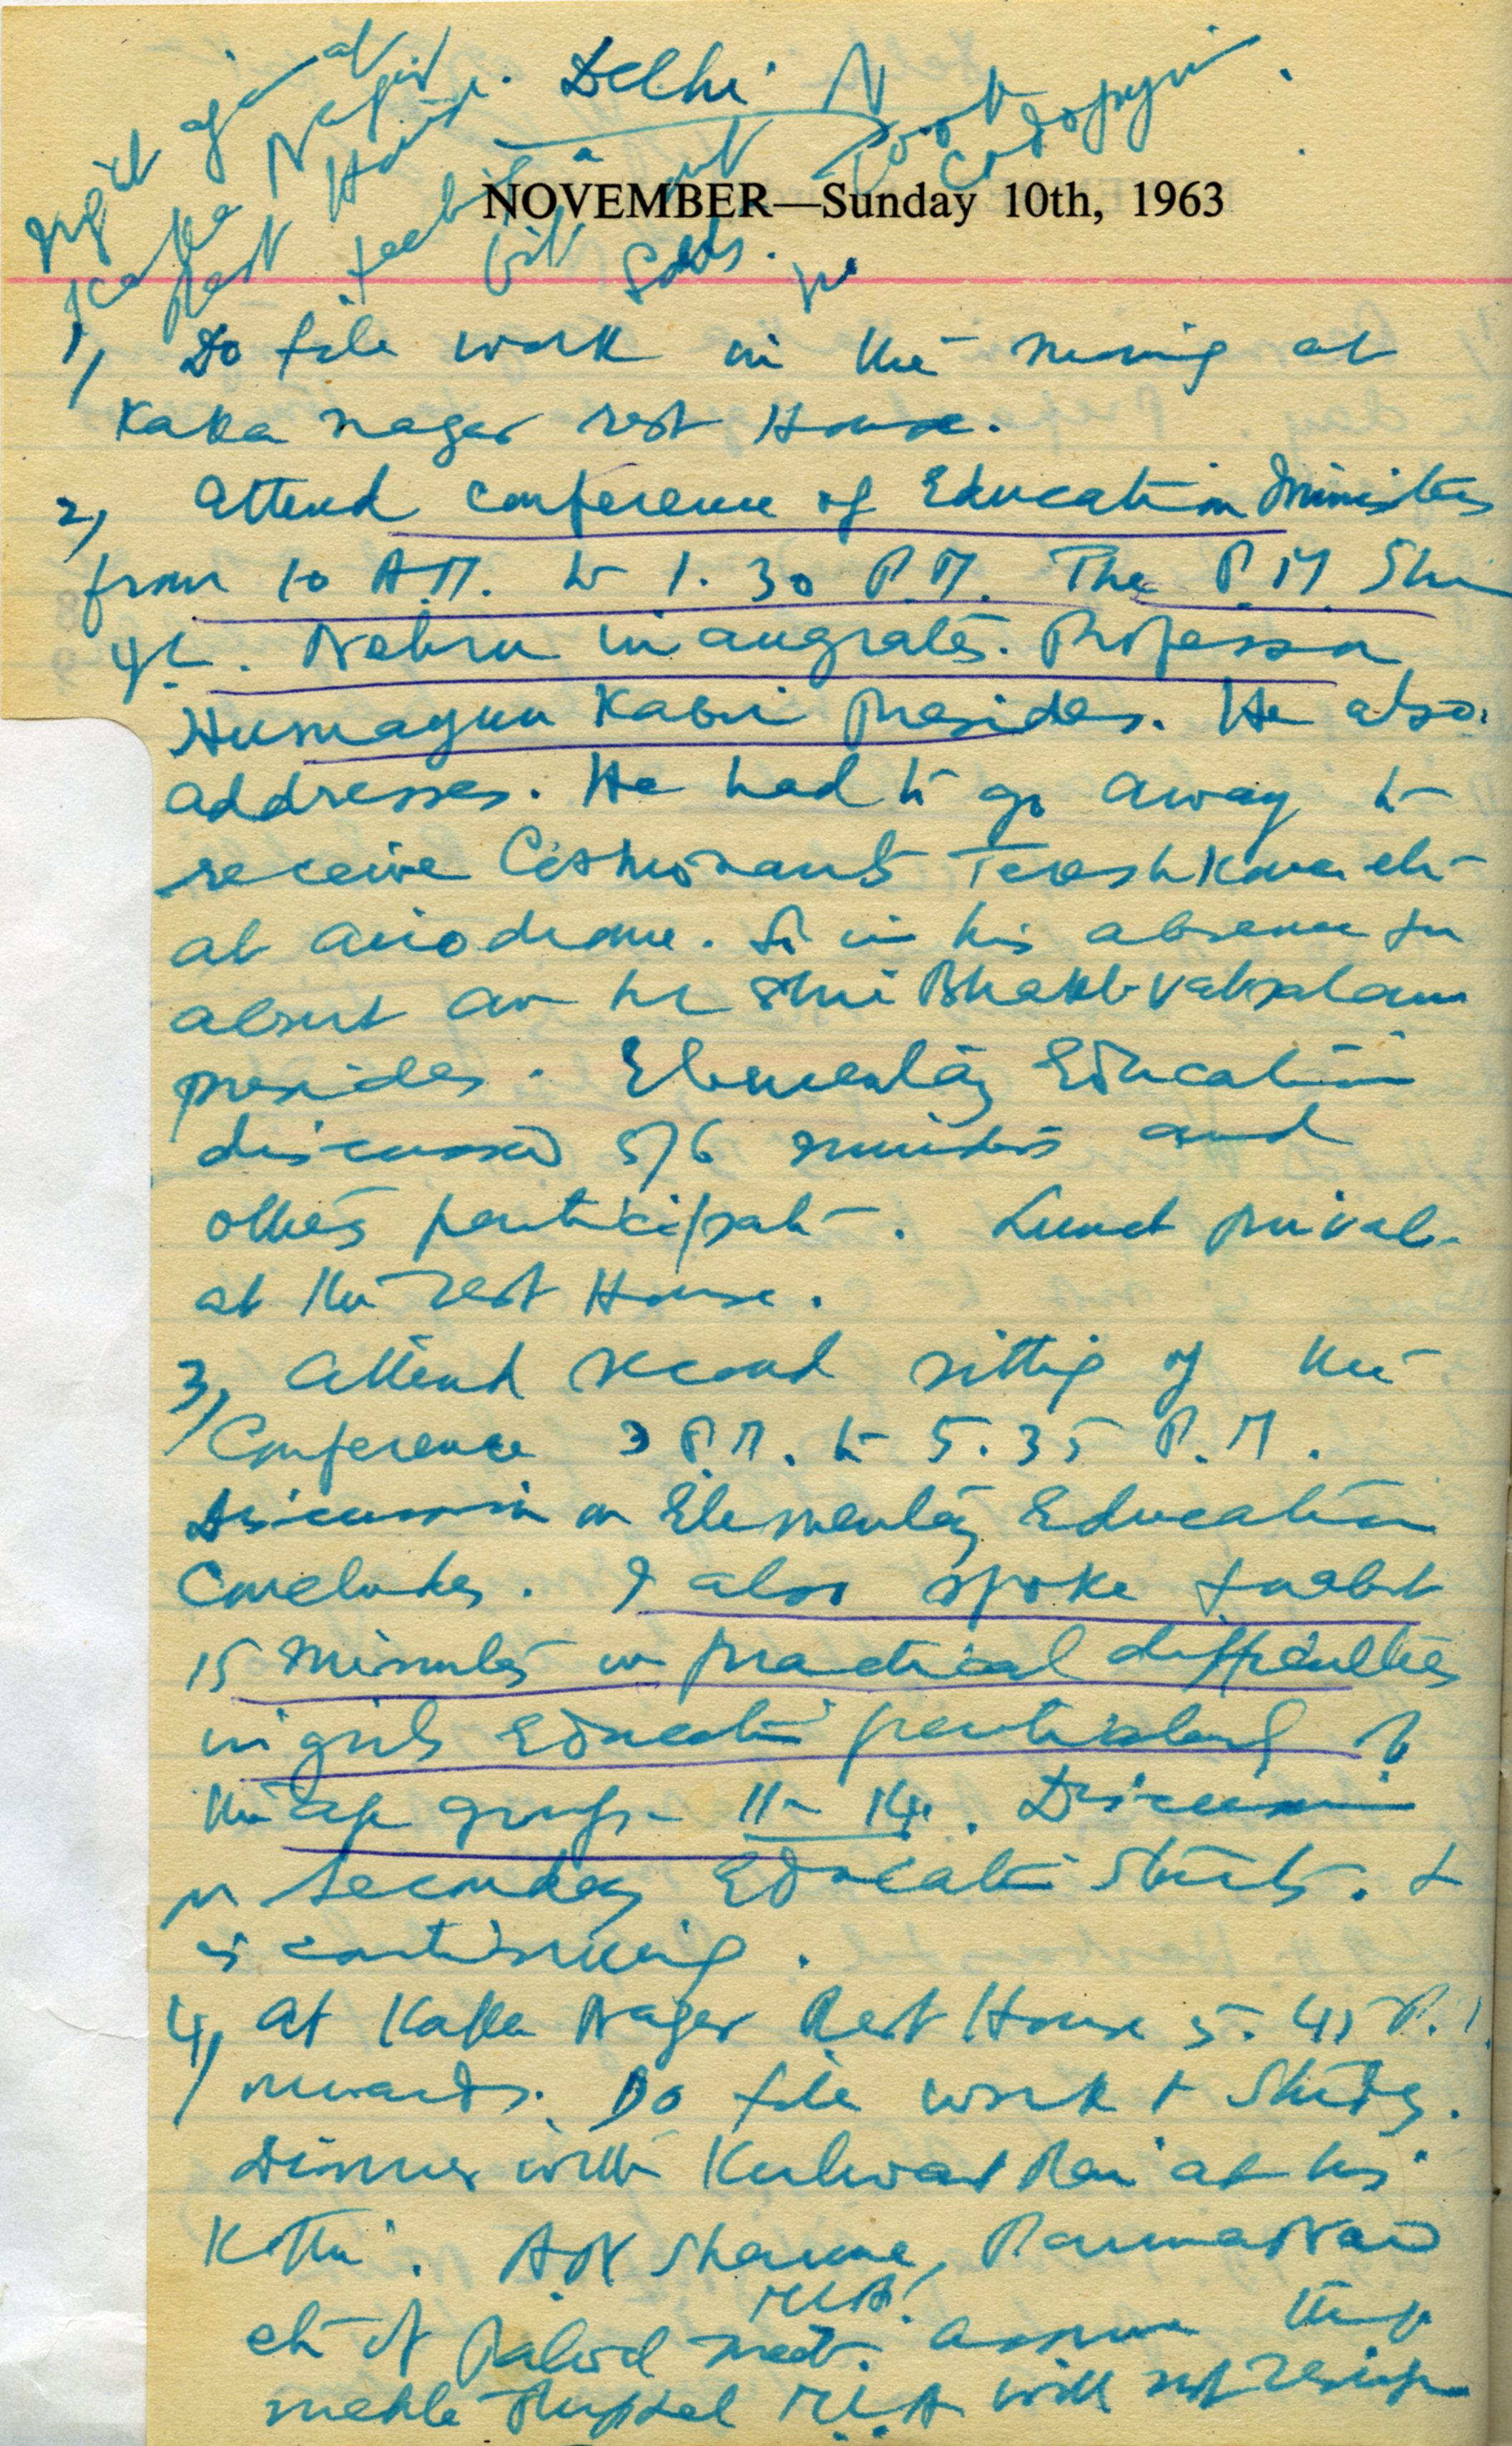 Delhi
Night again at
Kaka Nagar
Rest House.
feel
but
NOVEMBER—Sunday 10th, 1963
1, Do file work in the morning at
Kaka Nagar rest House.
2, Attend conference of Education Ministers
from 10 A.M. to 1.30 P.M. The P.M Shri
J.L. Nehru inaugrates. Professor
Humayun Kabir presides. He also
addresses. He had to go away to
receive Cosmonauts Tereshkova etc
at airodrome. So in his absence for
about an hr Shri Bhaktvatsalam
presides. Elementary Education
discussed 5/6 ministers and
others participate. Lunch private
at the rest House.
3, Attend second sitting of the
Conference 3 P.M. to 5.35 P.M.
Discussion on Elementary Education
Concludes. I also spoke for about
15 minutes on practical difficulties
in girls Education particularly of
the age group 11-14. Discussion
on Secondary Education Starts. &
is continuing.
4, At Kaka Nagar Rest House 5.45 P.M.
onwards. Do file work & Study.
Dinner with Kulwant Rai at his
Kothi. A.N Sharma, Parma Nand
etc of Palwal meet. MLA. assure
Mehla MLA will not resign